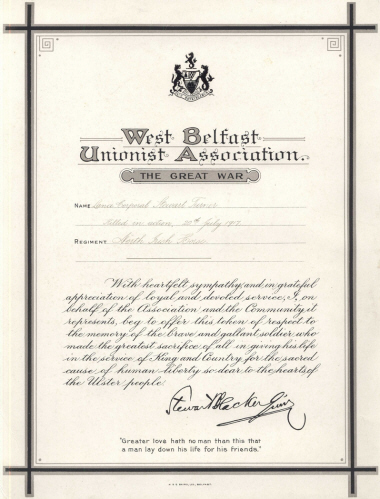 West Belfast
Unionist Association.
THE GREAT WAR
NAME Lance Corporal Stewart
Killed in action, 20th July 191
REGIMENT North Irish Horse
With heartfelt sympathy, and in grateful
appreciation of loyal and devoted service, I, on
behalf of the Association and the Community it
represents, beg to offer this token of respect to
the memory of the brave and gallant soldier who
made the greatest sacrifice of all in giving his life
in the service of King and Country, for the sacred
cause of human liberty so dear to the hearts of
the Ulster people.
Stewart Blacker Quin
"Greater love hath no man than this that
a man lay down his life for his friends."